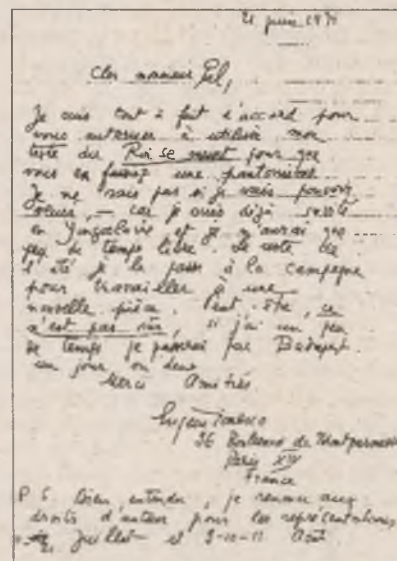 21 juin 197
Cher monsieur Gel,
Je suis tout à fait d'accord pour
vous autoriser à utiliser mon
texte du Roi se meurt pour que
vous en fassiez une pantomime.
Je ne sais pas si je vais pouvoir
venir, — car je suis déjà invité
en Yougoslavie et je n'aurai que
peu de temps libre. Le reste de
l'été je le passe à la campagne
pour travailler à une
nouvelle pièce. Peut-être, ce
n'est pas sûr, si j'ai un peu
de temps je passerai par Budapest
un jour ou deux.
Merci Amitiés
Eugène Ionesco
96 Boulevard du Montparnasse
Paris XIV
France
P. S. Bien entendu, je renonce aux
droits d'auteur pour les représentations
Juillet et 9-10-11 Août